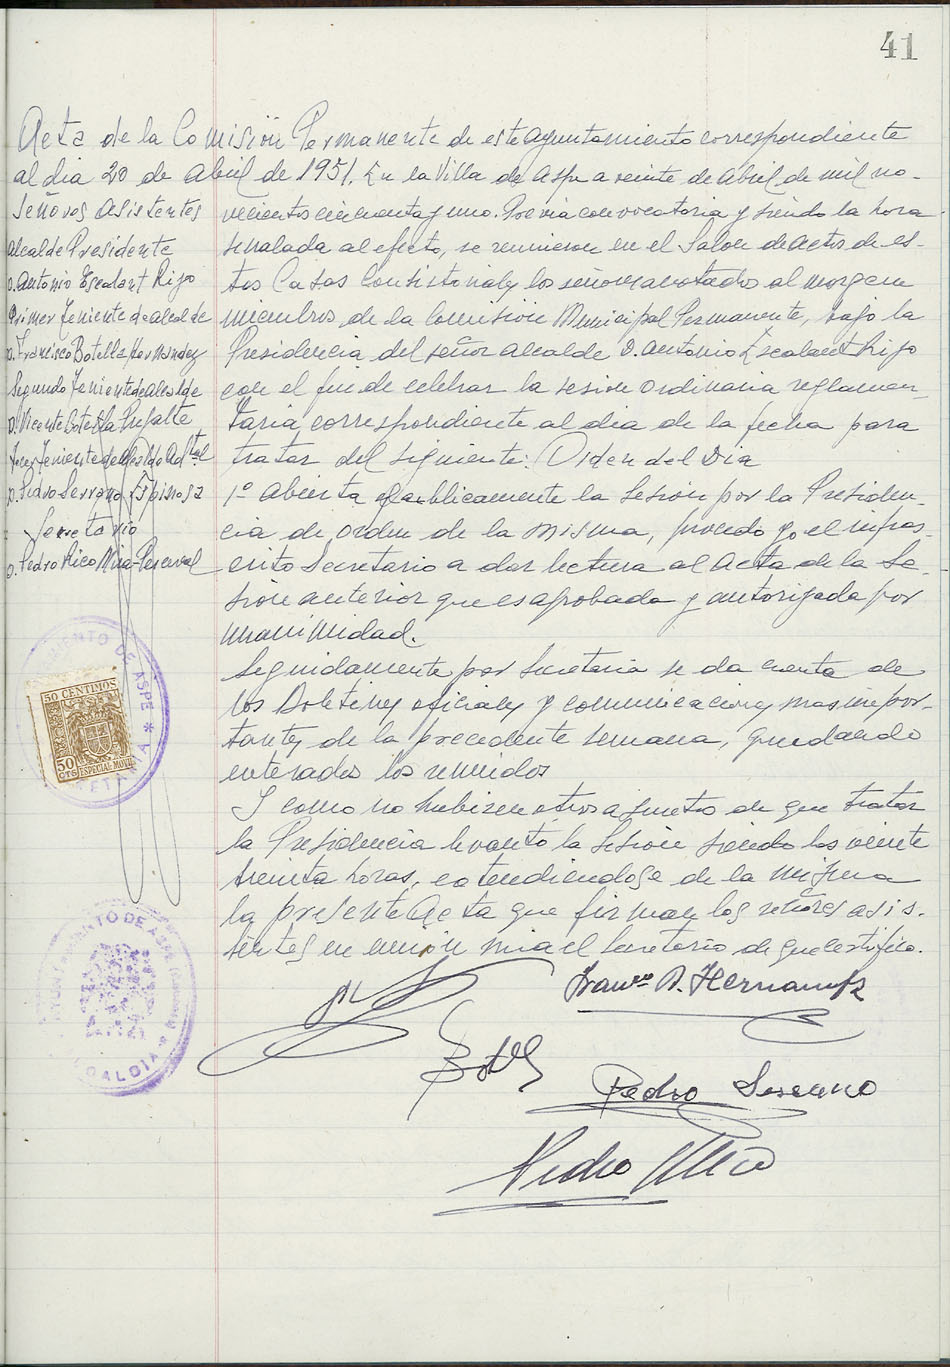 41
Acta de la Comisión Permanente de este Ayuntamiento correspondiente
al dia 20 de Abril de 1951. En la Villa de Aspe a veinte de Abril de mil no-
Señores Asistentes
Alcalde Presidente
D. Antonio Escalant Rizo
Primer Teniente de alcalde
D. Francisco Botella Hernandez
Segundo Teniente de alcalde
D. Vicente Botella Prefalte
Tercer Teniente de Alcalde Actal
D. Pedro Serrano Espinosa
Secretario
D. Pedro Rico Mira-Perceval
vecientos cincuenta y uno. Previa convocatoria y siendo la hora
señalada al efecto, se reunieron en el Salon de Actos de es-
tas Casas Consistoriales los señores anotados al margen
miembros de la Comisión Municipal Permanente, bajo la
Presidencia del señor Alcalde D. Antonio Escalant Rizo
con el fin de celebrar la sesion ordinaria reglamen-
taria correspondiente al dia de la fecha para
tratar del siguiente: Orden del Dia
1º Abierta publicamente la Sesión por la Presiden-
cia de orden de la misma, procedo yo el infras-
crito Secretario a dar lectura al Acta de la Se-
sion anterior que es aprobada y autorizada por
unanimidad.
Seguidamente por Secretaria se da cuenta de
los Boletines oficiales y comunicaciones mas impor-
tantes de la precedente semana, quedando
enterados los reunidos
Y como no hubieren otros asuntos de que tratar
la Presidencia levantó la Sesión siendo las veinte
treinta horas, extendiendose de la misma
la presente Acta que firman los señores asis-
tentes en unión mia el Secretario de que certifico.
AYUNTAMIENTO DE ASPE * SECRETARIA *
50 CENTIMOS
50 CTS ESPECIAL MOVIL
AYUNTAMIENTO DE ASPE (Alicante)
ALCALDIA
Franco B. Hernandz
Botell
Pedro Serrano
Pedro Rico